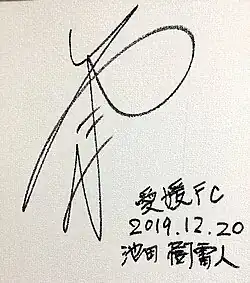 愛媛FC
2019.12.20
池田 樹雷人